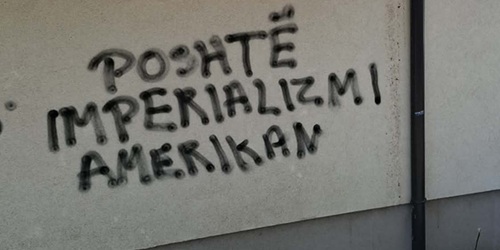 POSHTË
IMPERIALIZMI
AMERIKAN